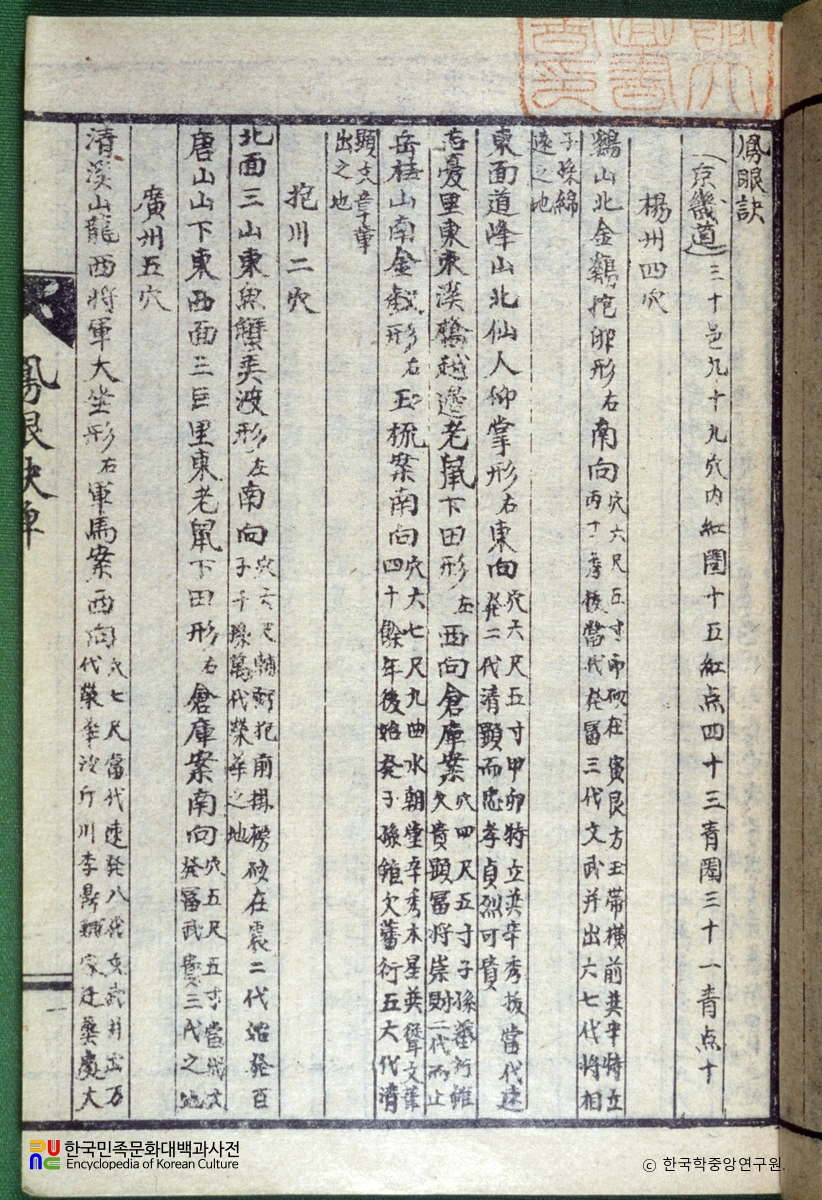 鳳眼訣
(京畿道)三十邑九十九穴内紅圈十五紅点四十三青圈三十一青点十
楊州四穴
鶴山北金鷄抱卵形右南向穴六尺五寸帀砂在寅艮方玉帶横前英辛特立
丙丁秀拔當代发富三代文武并出六七代将相
子孫綿
遠之地
東面道峰山北仙人仰掌形右東向穴六尺五寸甲卯特立英辛秀拔當代速
發二代清顯而忠孝貞烈可貴
忘憂里東東渓越邊老鼠下田形左西向倉庫案穴四尺五寸子孫蕃衍雖
欠貴顯冨将崇財二代而止
岳山南金釵形右玉梳案南向穴六七尺九曲水朝堂辛秀木星英聳文筆
四十餘年後始發子孫雖欠蕃衍五六代清
顯文章
出之地
抱川二穴
北面三山東魚蟹美波形左南向穴六尺輔弼犯前掛榜砂在震二代始發百
子千孫萬代榮華之地
唐山山下東西面三巨里東老鼠下田形右倉庫案南向穴五尺五寸當代文
發冨武貴三代之地
廣州五穴
清溪山龍西将軍大坐形右軍馬案西向穴七尺當代速發八代文武并出万
代榮華沙斤川李鼎輔家迁葬處大
鳳眼訣單
一
한국민족문화대백과사전
Encyclopedia of Korean Culture
© 한국학중앙연구원